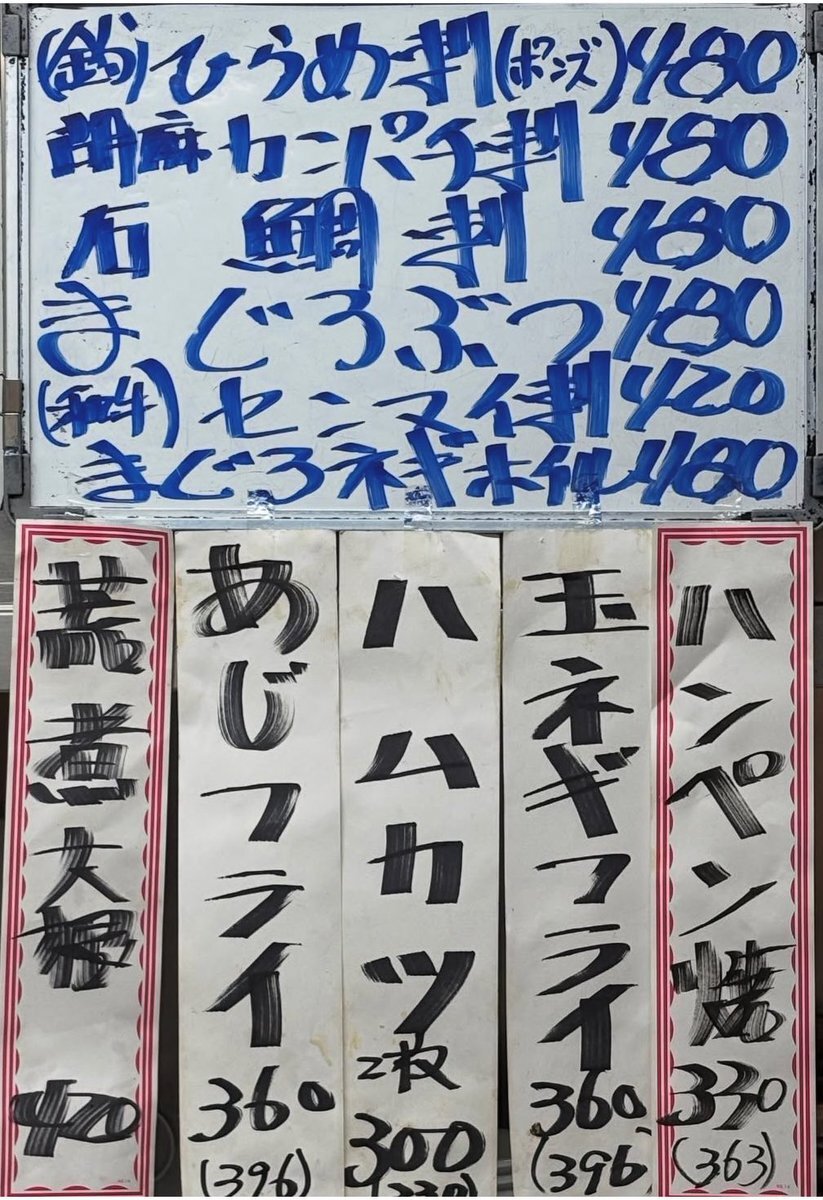 (釣)ひらめ刺(ポンズ)480
胡麻カンパチ刺 480
石鯛刺 480
まぐろぶつ 480
(和牛)センマイ刺 420
まぐろネギホイル 480
ハンペン焼
330
(363)
玉ネギフライ
360
(396)
ハムカツ
2枚
300
(330)
あじフライ
360
(396)
荒煮大根
420